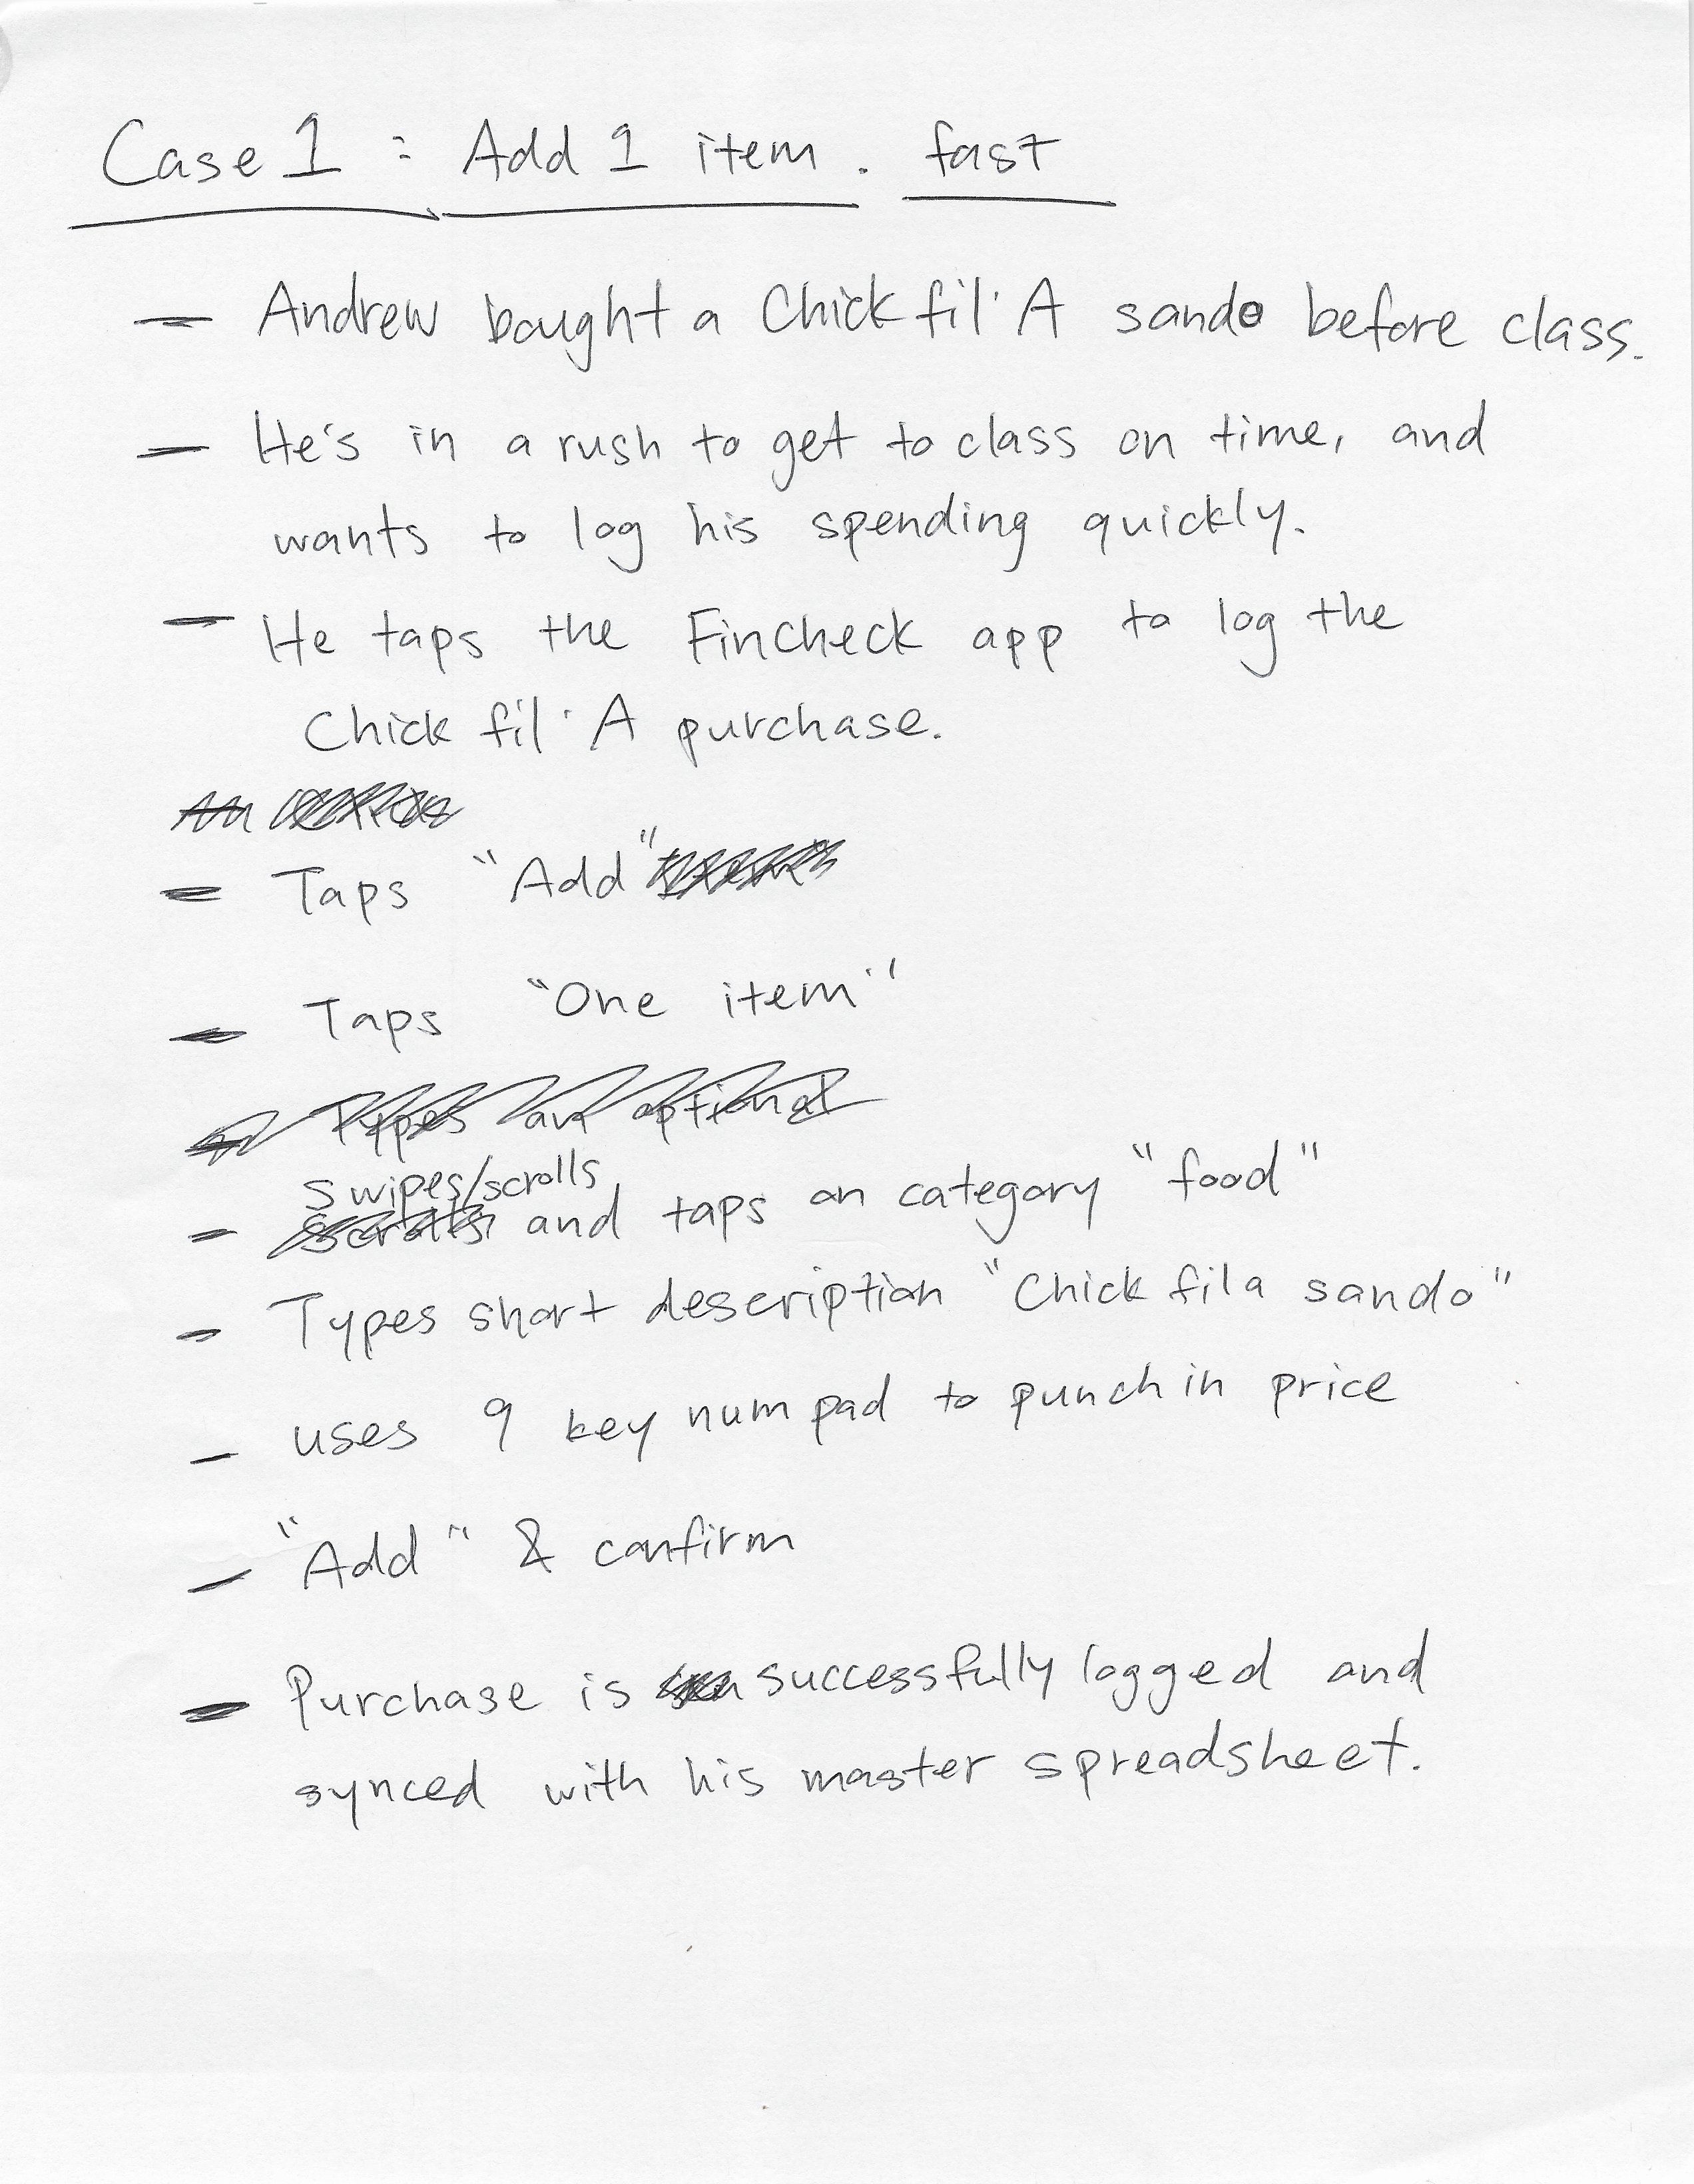 Case 1 : Add 1 item. fast
– Andrew bought a Chick fil' A sando before class.
– He's in a rush to get to class on time, and
wants to log his spending quickly.
– He taps the Fincheck app to log the
Chick fil' A purchase.
– Taps "Add"
– Taps "One item"
Types an optional
swipes/scrolls
– scrolls and taps on category "food"
– Types short description "Chick fil a sando"
– uses 9 key numpad to punch in price
– "Add" & confirm
– Purchase is successfully logged and
synced with his master spreadsheet.